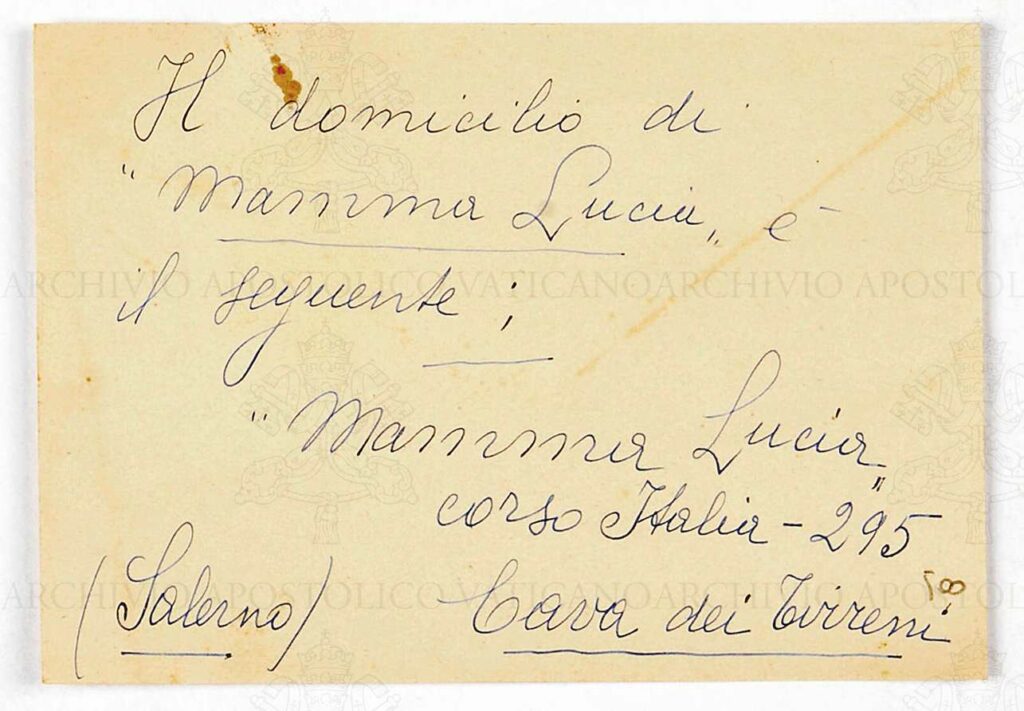 Il domicilio di
"Mamma Lucia„ è
il seguente;
"Mamma Lucia„
corso Italia - 295
(Salerno) Cava dei Tirreni
ARCHIVIO APOSTOLICO VATICANO
ARCHIVIO APOSTOLICO VATICANO